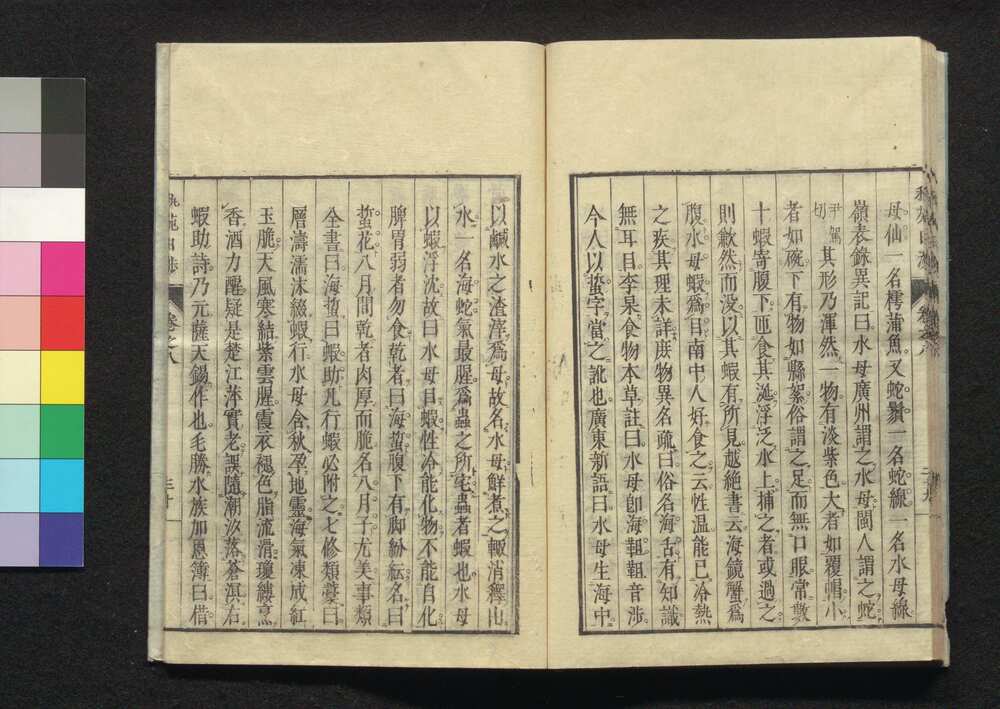 母仙一名樗蒲魚又蛇鬚一名蛇線一名水母線
嶺表錄異記曰水母廣州謂之水母閩人謂之蛇
尹駕切其形乃渾然一物有淡紫色大者如覆帽小
者如碗下有物如縣絮俗謂之足而無口眼常數
十蝦寄腹下匝食其涎浮泛水上捕之者或過之
則欻然而沒以其蝦有所見越絶書云海鏡蟹爲
腹水母蝦爲目南中人好食之云性温能已冷熱
之疾其理未詳庶物異名疏曰俗名海舌有知識
無耳目李杲食物本草註曰水母卽海䖳䖳音渉
今人以蜇字當之訛也廣東新語曰水母生海中
以鹹水之渣滓爲母故名水母鮮煮之輙消釋出
水一名海蛇氣最腥爲蟲之所宅蟲者蝦也水母
以蝦浮沈故曰水母目蝦性冷能化物不能自化
脾胃弱者勿食乾者曰海蜇腹下有脚紛紜名曰
蜇花八月間乾者肉厚而脆名八月子尤美事類
全書曰海蜇曰蝦助凡行蝦必附之七修類藁曰
層濤濡沫綴蝦行水母含秋孕地靈海氣凍成紅
玉脆天風寒結紫雲腥霞衣褪色脂流滑瓊縷烹
香酒力醒疑是楚江萍實老誤隨潮汐落蒼溟右
蝦助詩乃元薩天錫作也毛勝水族加恩簿曰借
卷之八
三十